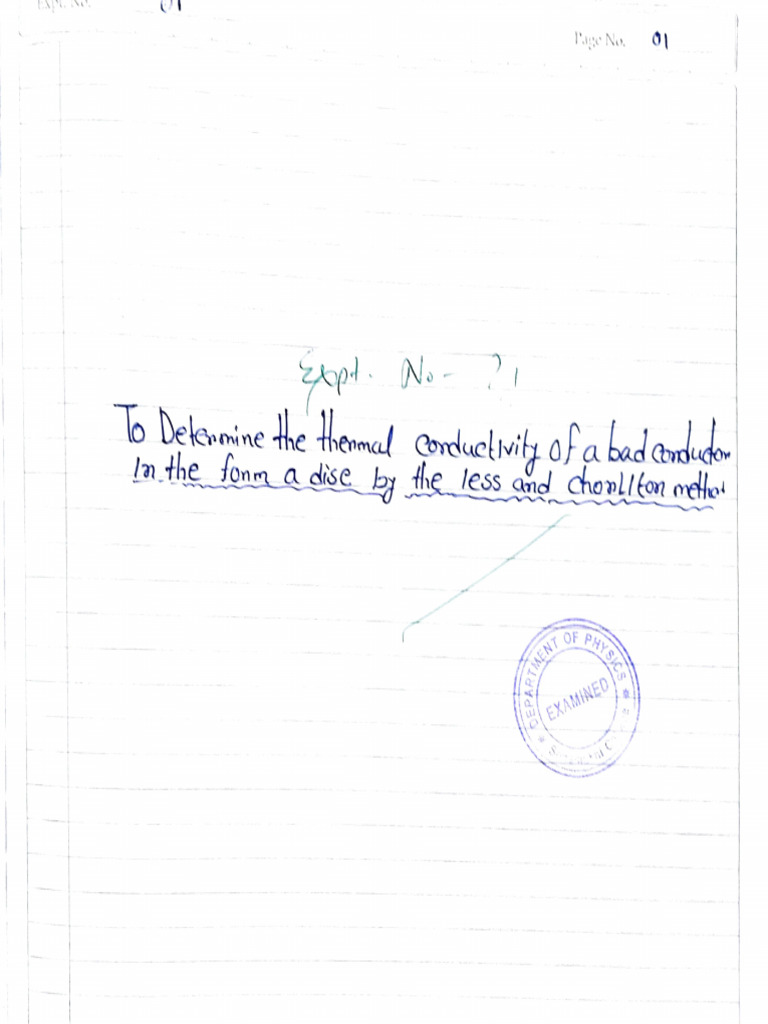 Expt. No. 01
Page No. 01
Expt. No - ? 1
To Determine the thermal conductivity of a bad conductor
in the form a disc by the less and chorlton method
DEPARTMENT OF PHYSICS
EXAMINED